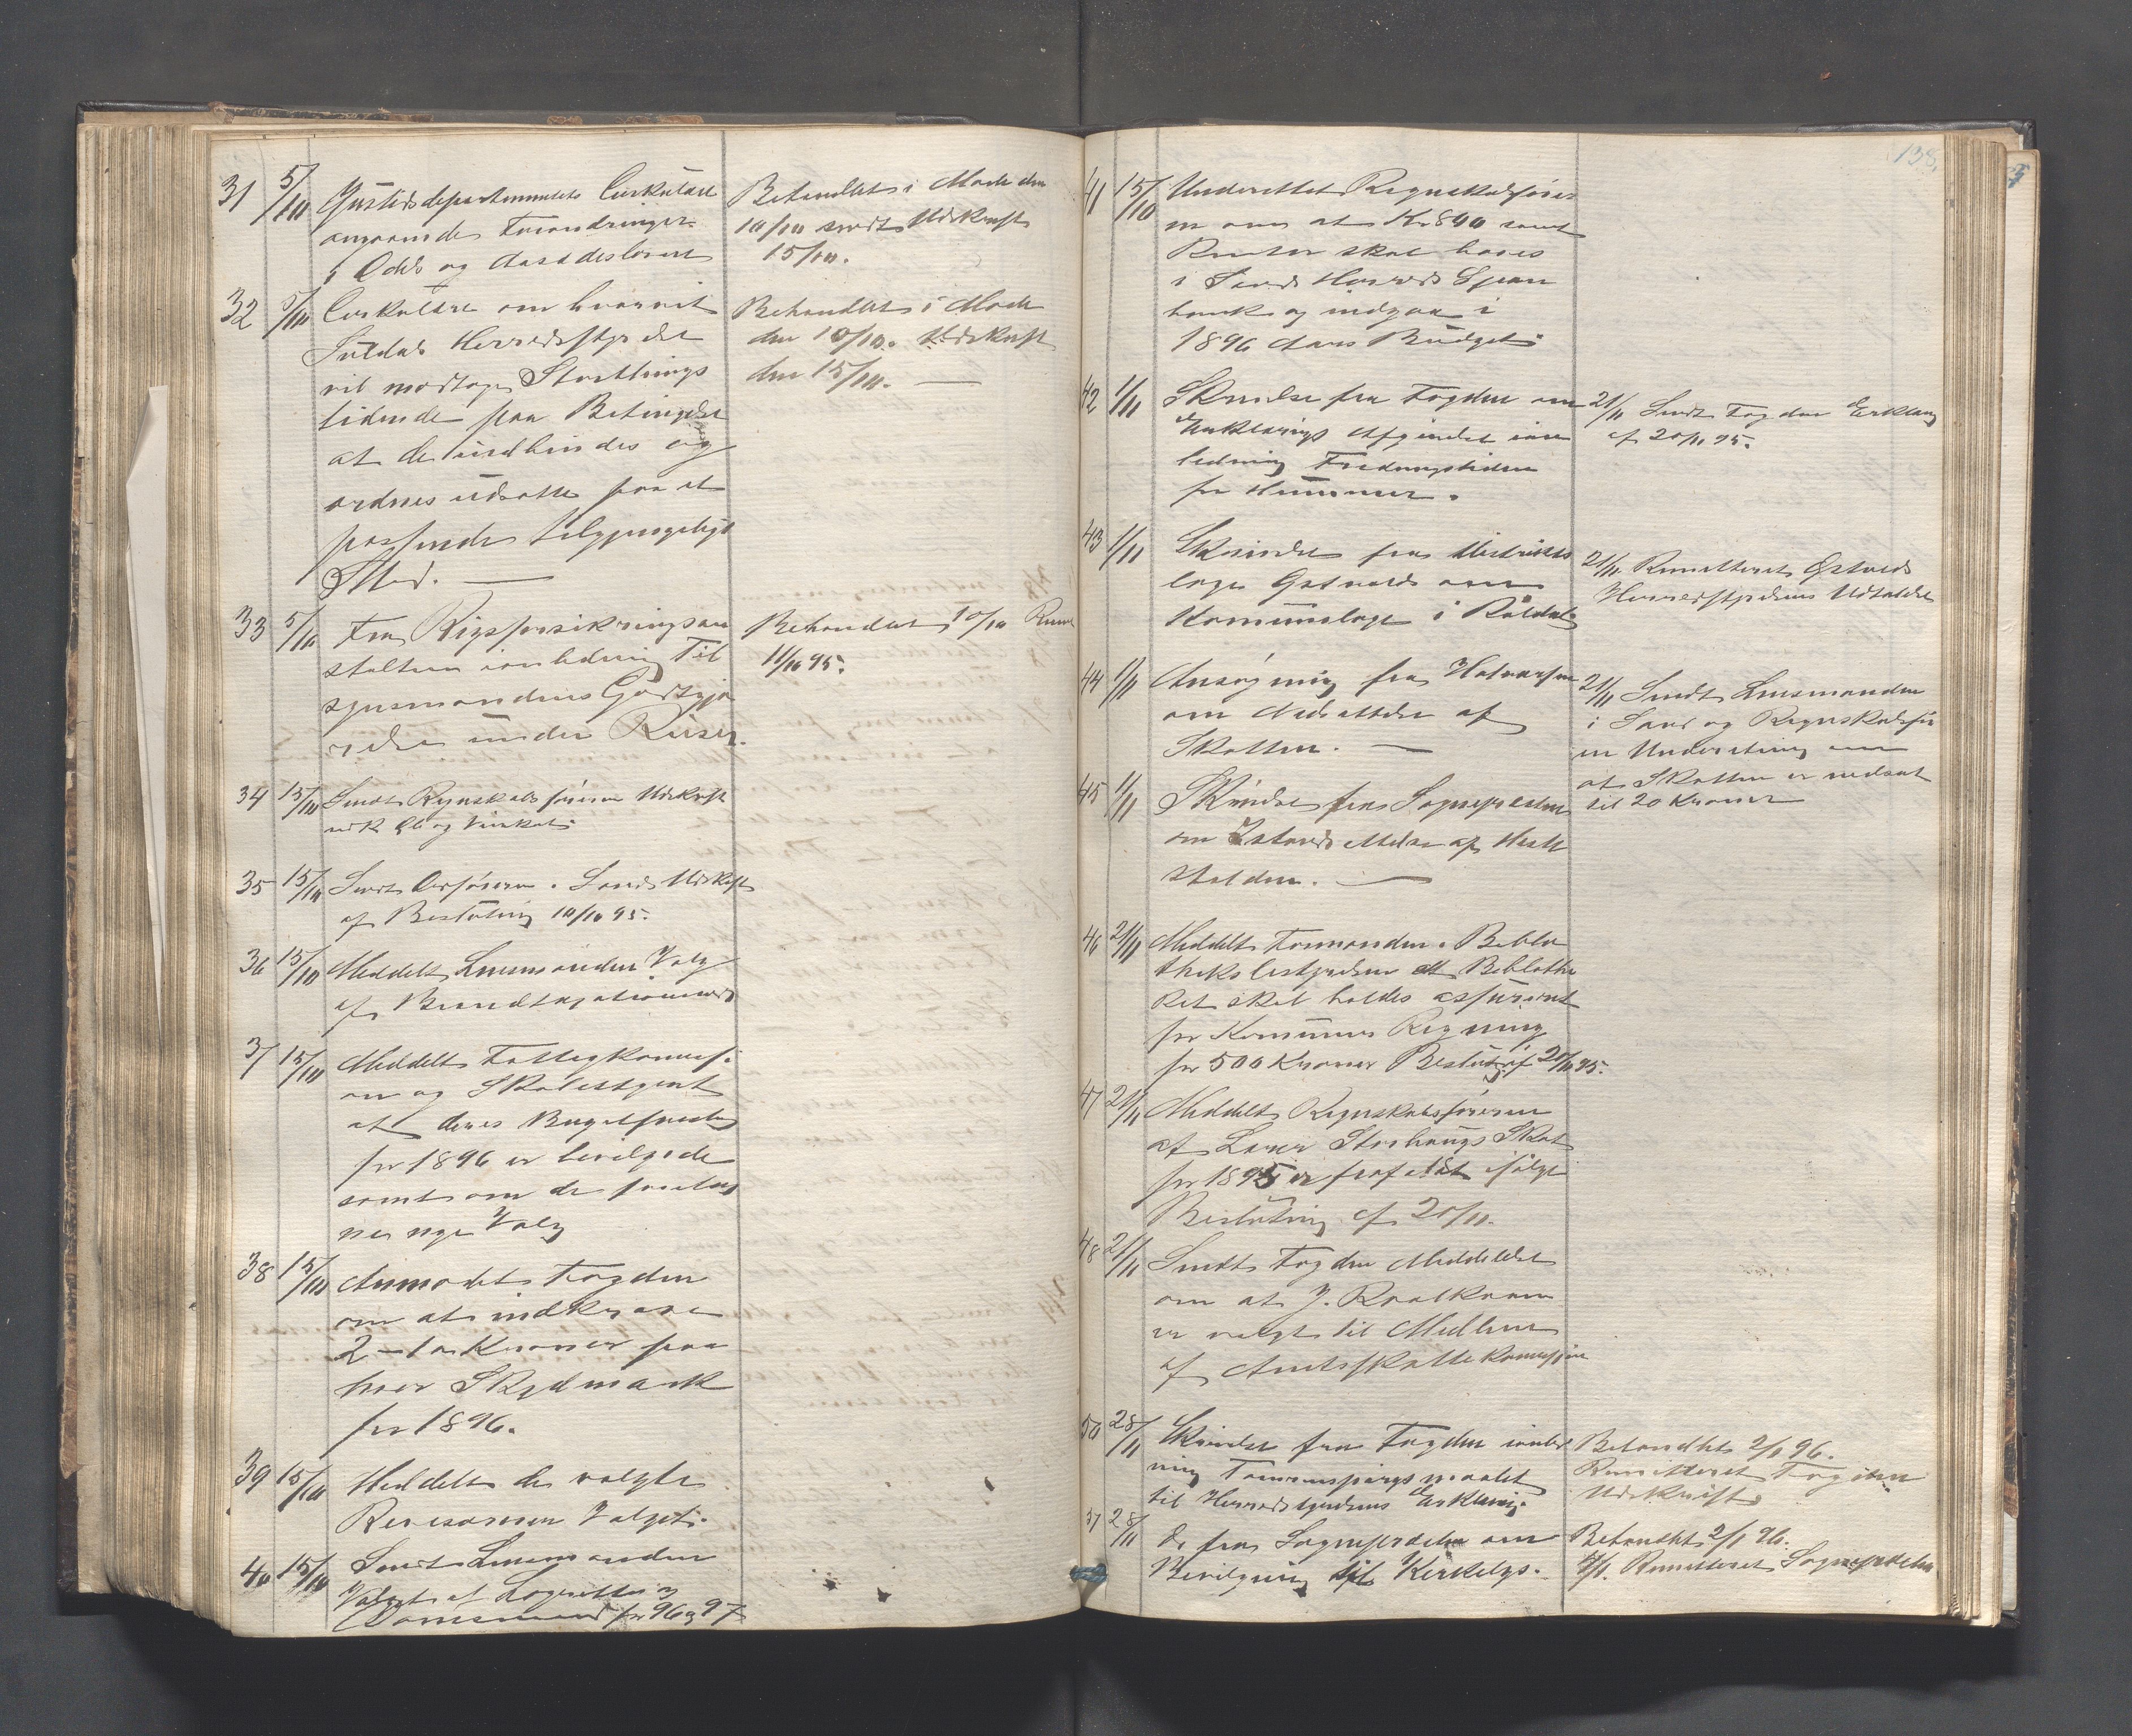 31 5/10 Justisdepartementets Cirkulære
angaaende Forandringer
i Odels og Aasædesloven
Behandlet i Møde den
10/10 sendt Udskrift
15/10.
32 5/10 Cirkulære om hvorvit
Suldals Herredsstyrelse
vil modtage Storthings
tidende paa Betingelse
at de indbindes og
ordnes udsatte paa et
passende tilgjængeligt
Sted. —
Behandlet i Møde
den 10/10. Udskrift
den 15/10. —
33 5/10 Fra Rigsforsikringsan
stalten i anledning Til
synsmandens Godtgjø
relse under Reiser.
Behandlet 10/10
11/10 95.
34 15/10 Sendt Regnskabsføreren Udskrift
35 15/10 Sendt Ordføreren i Sand Udskrift
af Beslutning 10/10 95.
36 15/10 Meddelt Lensmanden Valg
af Brandtaxationsmænd
37 15/10 Meddelt Fattigkommis.
on og Skolestyret
at deres Bugetforslag
for 1896 er bevilgede
samt om de foretag
ne nye Valg
38 15/10 Anmodet Fogden
om at indkræve
2 – to Kroner paa
hver Skyldmark
for 1896.
39 15/10 Meddelt de valgte
Revisorer Valget.
40 15/10 Sendt Lensmanden
Valget af Lagrette og
Domsmænd for 96 og 97
138,
41 15/10 Underettet Regnskabsføre
en om at Kr 800 samt
Renter skal haves
i Sands Herreds Spare
bank og indgaa i
1896 Aars Budget.
42 1/11 Skrivelse fra Fogden om
Erklærings Afgivelse i an
ledning Fredningstiden
for Hummer.
21/11 Sendt Fogden Erklæring
af 20/11 95.
43 1/11 Skrivelse fra Distrikts
læge Østvold om
Kommunelæge i Røldal.
21/11 Remitteret Østvold
Herredsstyrelsens Udtalelse
44 1/11 Ansøgning fra Halvorsen
om Nedsættelse af
Skatten. —
21/11 Sendt Lensmanden
i Sand og Regnskabsfø
en Underetning om
at Skatten er nedsat
til 20 Kroner
45 1/11 Skrivelse fra Sognepresten
om Istandsættelse af Heste
stalden. —
46 21/11 Meddelt Formanden i Biblio
theksbestyrelsen at Bibliothe
ket skal holdes assureret
for Kommunes Regning
for 500 Kroner Beslutning af 20/11 95.
47 21/11 Meddelt Regnskabsføreren
at Lærer Storhaugs Skat
for 1895 er frafaldt ifølge
Beslutning af 20/11.
48 21/11 Sendt Fogden Meddelelse
om at J. Roalkvam
er valgt til Medlem
af Amtsskattekommission
50 28/11 Skrivelse fra Fogden i anled
ning
til Herredsstyrelsens Erklæring.
Behandlet 2/1 96.
Remitteret Fogden
Udskrift
51 28/11 Do fra Sognepresten om
Bevilgning til Kirkelys.
Behandlet 2/1 96.
4/1. Remitteret Sognepresten